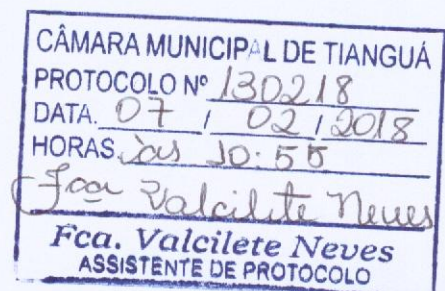 CÂMARA MUNICIPAL DE TIANGUÁ
PROTOCOLO Nº 130218
DATA. 07 / 02 / 2018
HORAS às 10:55
Fca Valcilete Neves
Fca. Valcilete Neves
ASSISTENTE DE PROTOCOLO